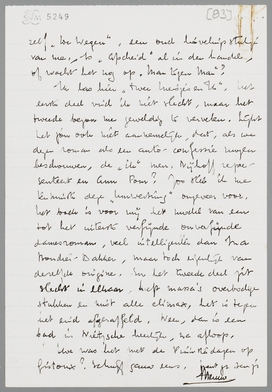 5249 [83]
zelf "De Wegen", een oud huwelijksstukje
van me, - is "Afscheid" al in den handel,
of wacht het nog op "Man tegen Man"?
Ik las hier "Twee meisjes en ik", het
eerste deel vind ik niet slecht, maar het
tweede begon me geweldig te vervelen. Lijkt
het jou ook niet aannemelijk, dat, als we
deze roman als een auto-confessie mogen
beschouwen, de "ik" men. Nijhoff repre-
senteert en Ann Pour? Zoo stel ik me
tenminste deze "omwerking" ongeveer voor.
het boek is voor mij het model van een
tot het uiterste verfijnde onverfijnde
damesroman, veel intelligenter dan Ina
Boudier-Bakker, maar toch eigenlijk van
dezelfde origine. In het tweede deel zit
slecht in elkaar, heft massa's overbodige
stukken en mist alle climax, het is tegen
het eind afgeraffeld. Neen, dan is een
bad in Nietzsche heerlijk, na afloop.
Hoe was het met de Pinksterdagen op
Gistoux? Schrijf gauw eens,